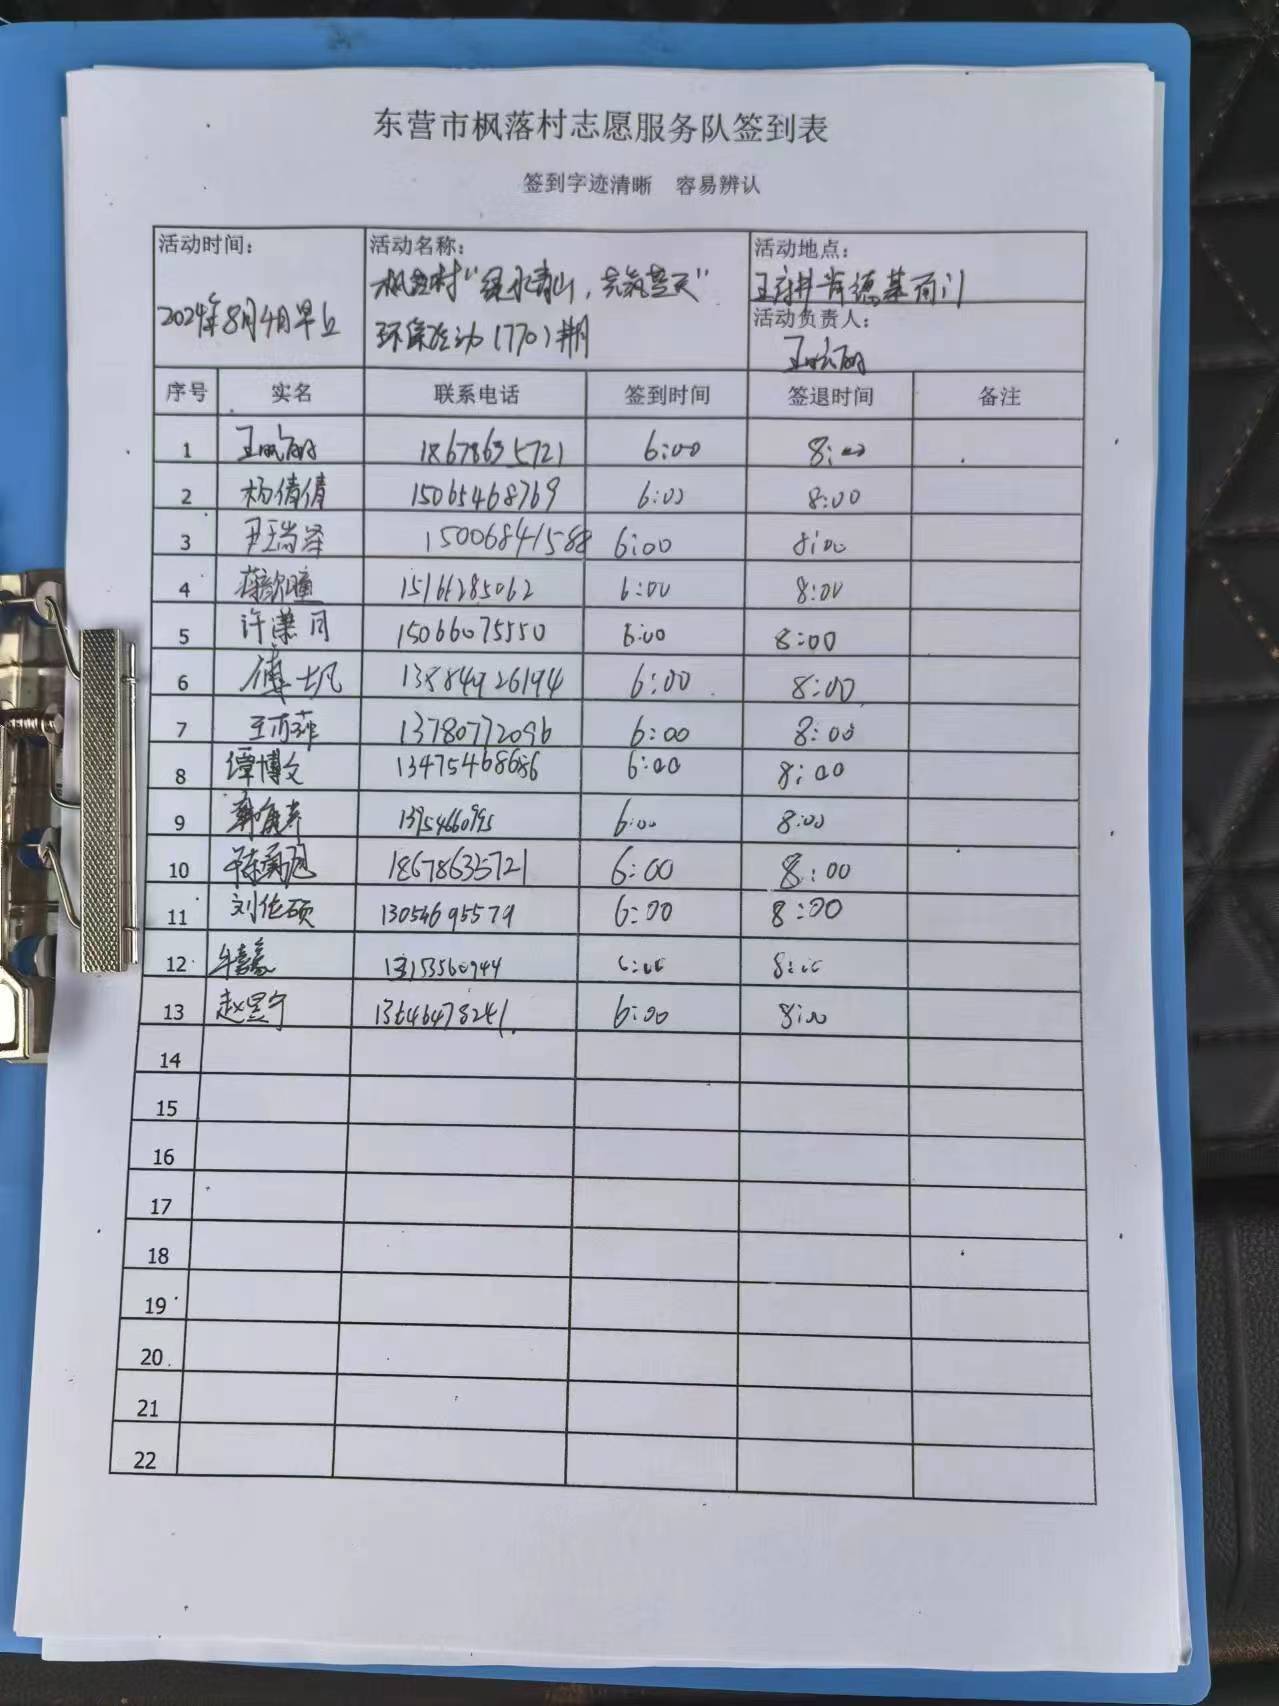 东营市枫落村志愿服务队签到表
签到字迹清晰 容易辨认
活动时间: 活动名称: 活动地点:
2024年8月4日早上 枫落村“绿水青山，共筑蓝天” 王府井肯德基西门
环保活动（770）期 活动负责人:
序号 实名 联系电话 签到时间 签退时间 备注
1 18678635721 6:00 8:00
2 杨倩倩 15065468769 6:00 8:00
3 尹瑞泽 15006841588 6:00 8:00
4 6:00 8:00
5 许潇月 15066075550 6:00 8:00
6 傅士凡 13884926194 6:00 8:00
7 13780772096 6:00 8:00
8 谭博文 6:00 8:00
9 6:00 8:00
10 18678635721 6:00 8:00
11 刘佐硕 13054695579 6:00 8:00
12 6:00 8:00
13 赵昱宁 13646478241 6:00 8:00
14
15
16
17
18
19
20
21
22